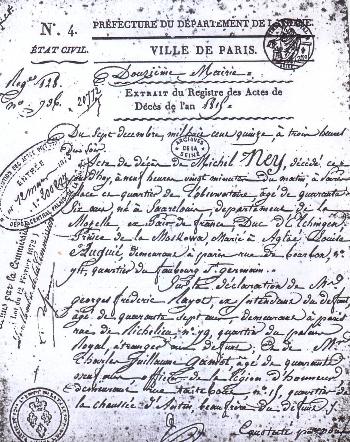 N.º 4.
PRÉFECTURE DU DÉPARTEMENT DE LA SEINE.
ÉTAT CIVIL.
VILLE DE PARIS.
Douzième Mairie
Regre 428
No 736.
EXTRAIT du Registre des Actes de
Décès de l'an 1815
Du Sept décembre, mil huit cent quinze à trois heures
du soir.
ARCHIVES
DE LA
SEINE
ENTRÉE
Acte de décès de Michel Ney, décédé, ce
jourd'hui, à neuf heures vingt minutes du matin,
place et quartier de l'observatoire, âgé de quarante
six ans né à Sarrelouis, département de la
Moselle ex Pair de france, Duc d'Elchingen,
Prince de la Moskowa, Marié à Aglaé Louise
Auguié, demeurant à paris rue de bourbon, n.º
quartier du faubourg St germain.
Sur la déclaration de Mr
georges frédéric Rayot, ex Intendant du défunt
âgé de quarante sept ans demeurant à paris
rue de Richelieu n.º 79, quartier du palais
Royal, étranger au défunt, et de Mr
Charles Guillaume Gamot âgé de quarante
ans, officier de la légion d'honneur
demeurant rue n.º 15 quartier de
la chaussée d'Antin, beau frère du défunt
Constaté par